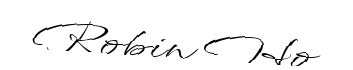 Robin Ho